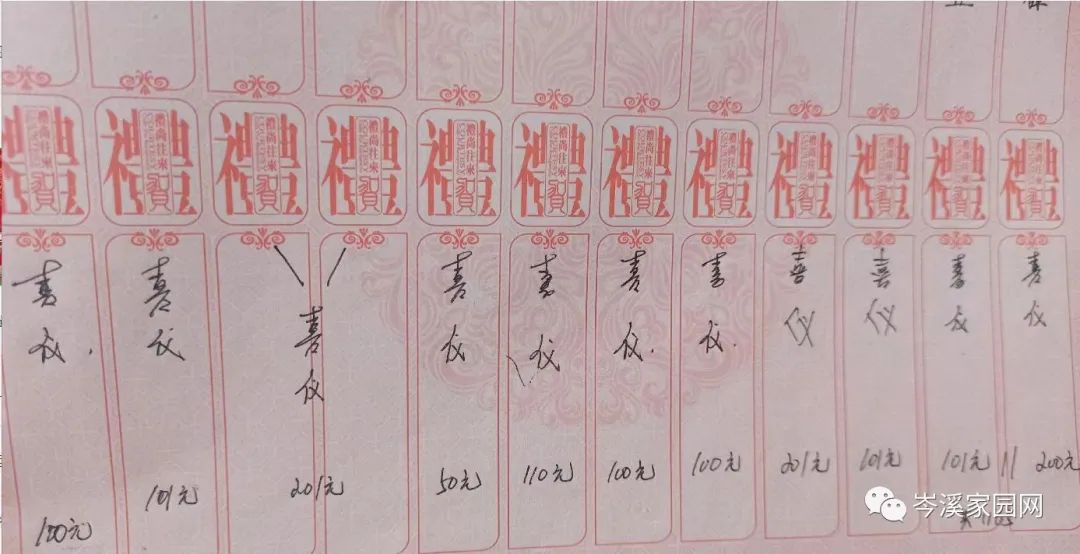 禮
禮尚往來
賀
喜仪
200元
禮
禮尚往來
賀
喜仪
101元
禮
禮尚往來
賀
喜仪
101元
禮
禮尚往來
賀
喜仪
201元
禮
禮尚往來
賀
喜仪.
100元
禮
禮尚往來
賀
喜仪.
100元
禮
禮尚往來
賀
喜仪
110元
禮
禮尚往來
賀
喜仪
50元
禮
禮尚往來
賀
禮
禮尚往來
賀
喜仪
201元
禮
禮尚往來
賀
喜仪
101元
禮
禮尚往來
賀
喜仪.
100元
岑溪家园网